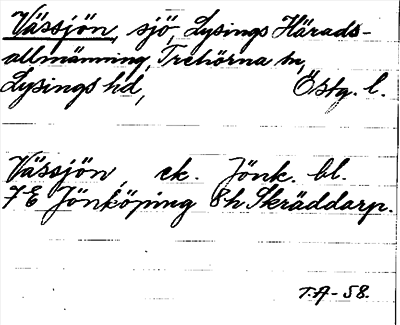 Vässjön, sjö, Lysings Härads-
allmänning, Trehörna sn,
Lysings hd, Östg. l.
Vässjön, ek. Jönk. bl.
7E Jönköping 8h Skräddarp.
T.A-58.